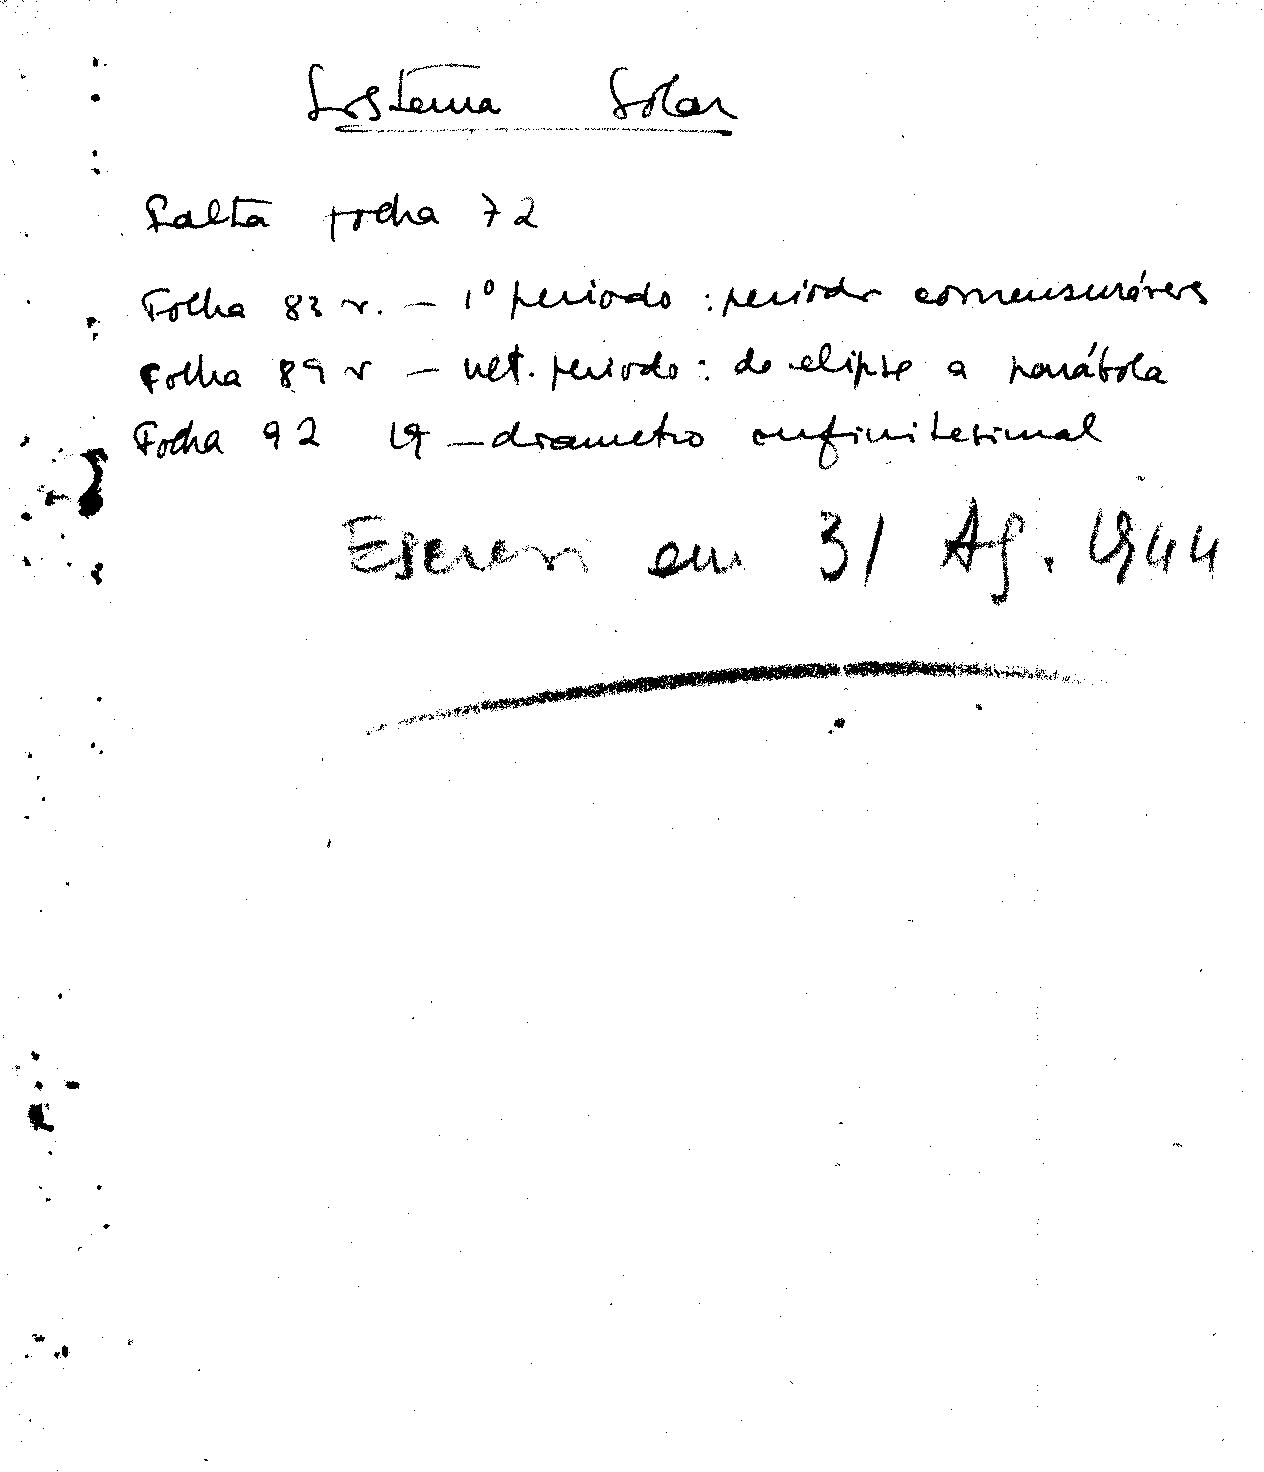 Sistema Solar
Falta folha 72
Folha 83 v. — 1º periodo : periodos comensuráveis
Folha 89 v — ult. periodo : de elipse a parábola
Folha 92 — diametro infinitesimal
Escrevi em 31 Ag. 1944